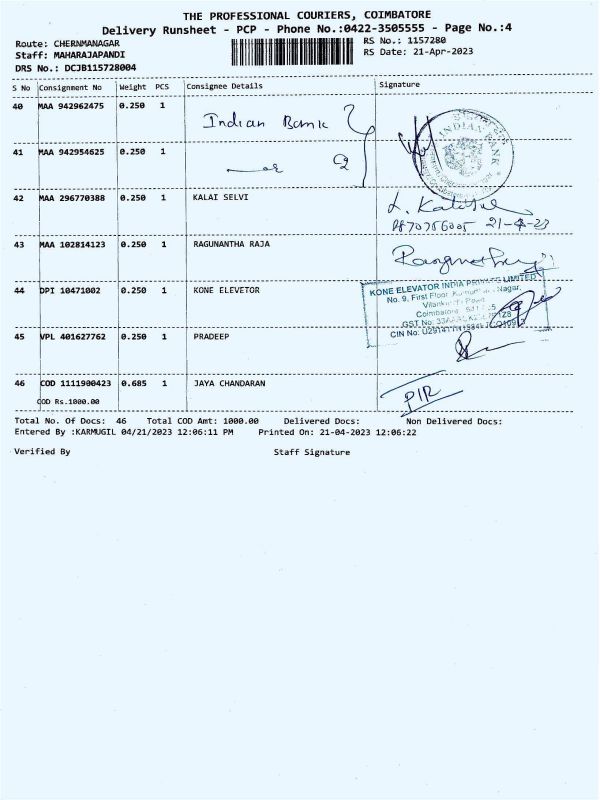 THE PROFESSIONAL COURIERS, COIMBATORE
Delivery Runsheet - PCP - Phone No.:0422-3505555 - Page No.:4
Route: CHERNMANAGAR
RS No.: 1157280
Staff: MAHARAJAPANDI
RS Date: 21-Apr-2023
DRS No.: DCJB115728004
S No Consignment No Weight PCS Consignee Details Signature
40 MAA 942962475 0.250 1 Indian Bank
INDIAN BANK
41 MAA 942954625 0.250 1
42 MAA 296770388 0.250 1 KALAI SELVI
21-4-23
43 MAA 102814123 0.250 1 RAGUNANTHA RAJA
44 DPI 10471002 0.250 1 KONE ELEVETOR
KONE ELEVATOR INDIA PRIVATE LIMITED
No. 9, First Floor, Nagar,
Coimbatore
GST No:
CIN No:
45 VPL 401627762 0.250 1 PRADEEP
46 COD 1111900423 0.685 1 JAYA CHANDARAN
COD Rs.1000.00
Total No. Of Docs: 46 Total COD Amt: 1000.00 Delivered Docs: Non Delivered Docs:
Entered By :KARMUGIL 04/21/2023 12:06:11 PM Printed On: 21-04-2023 12:06:22
Verified By Staff Signature